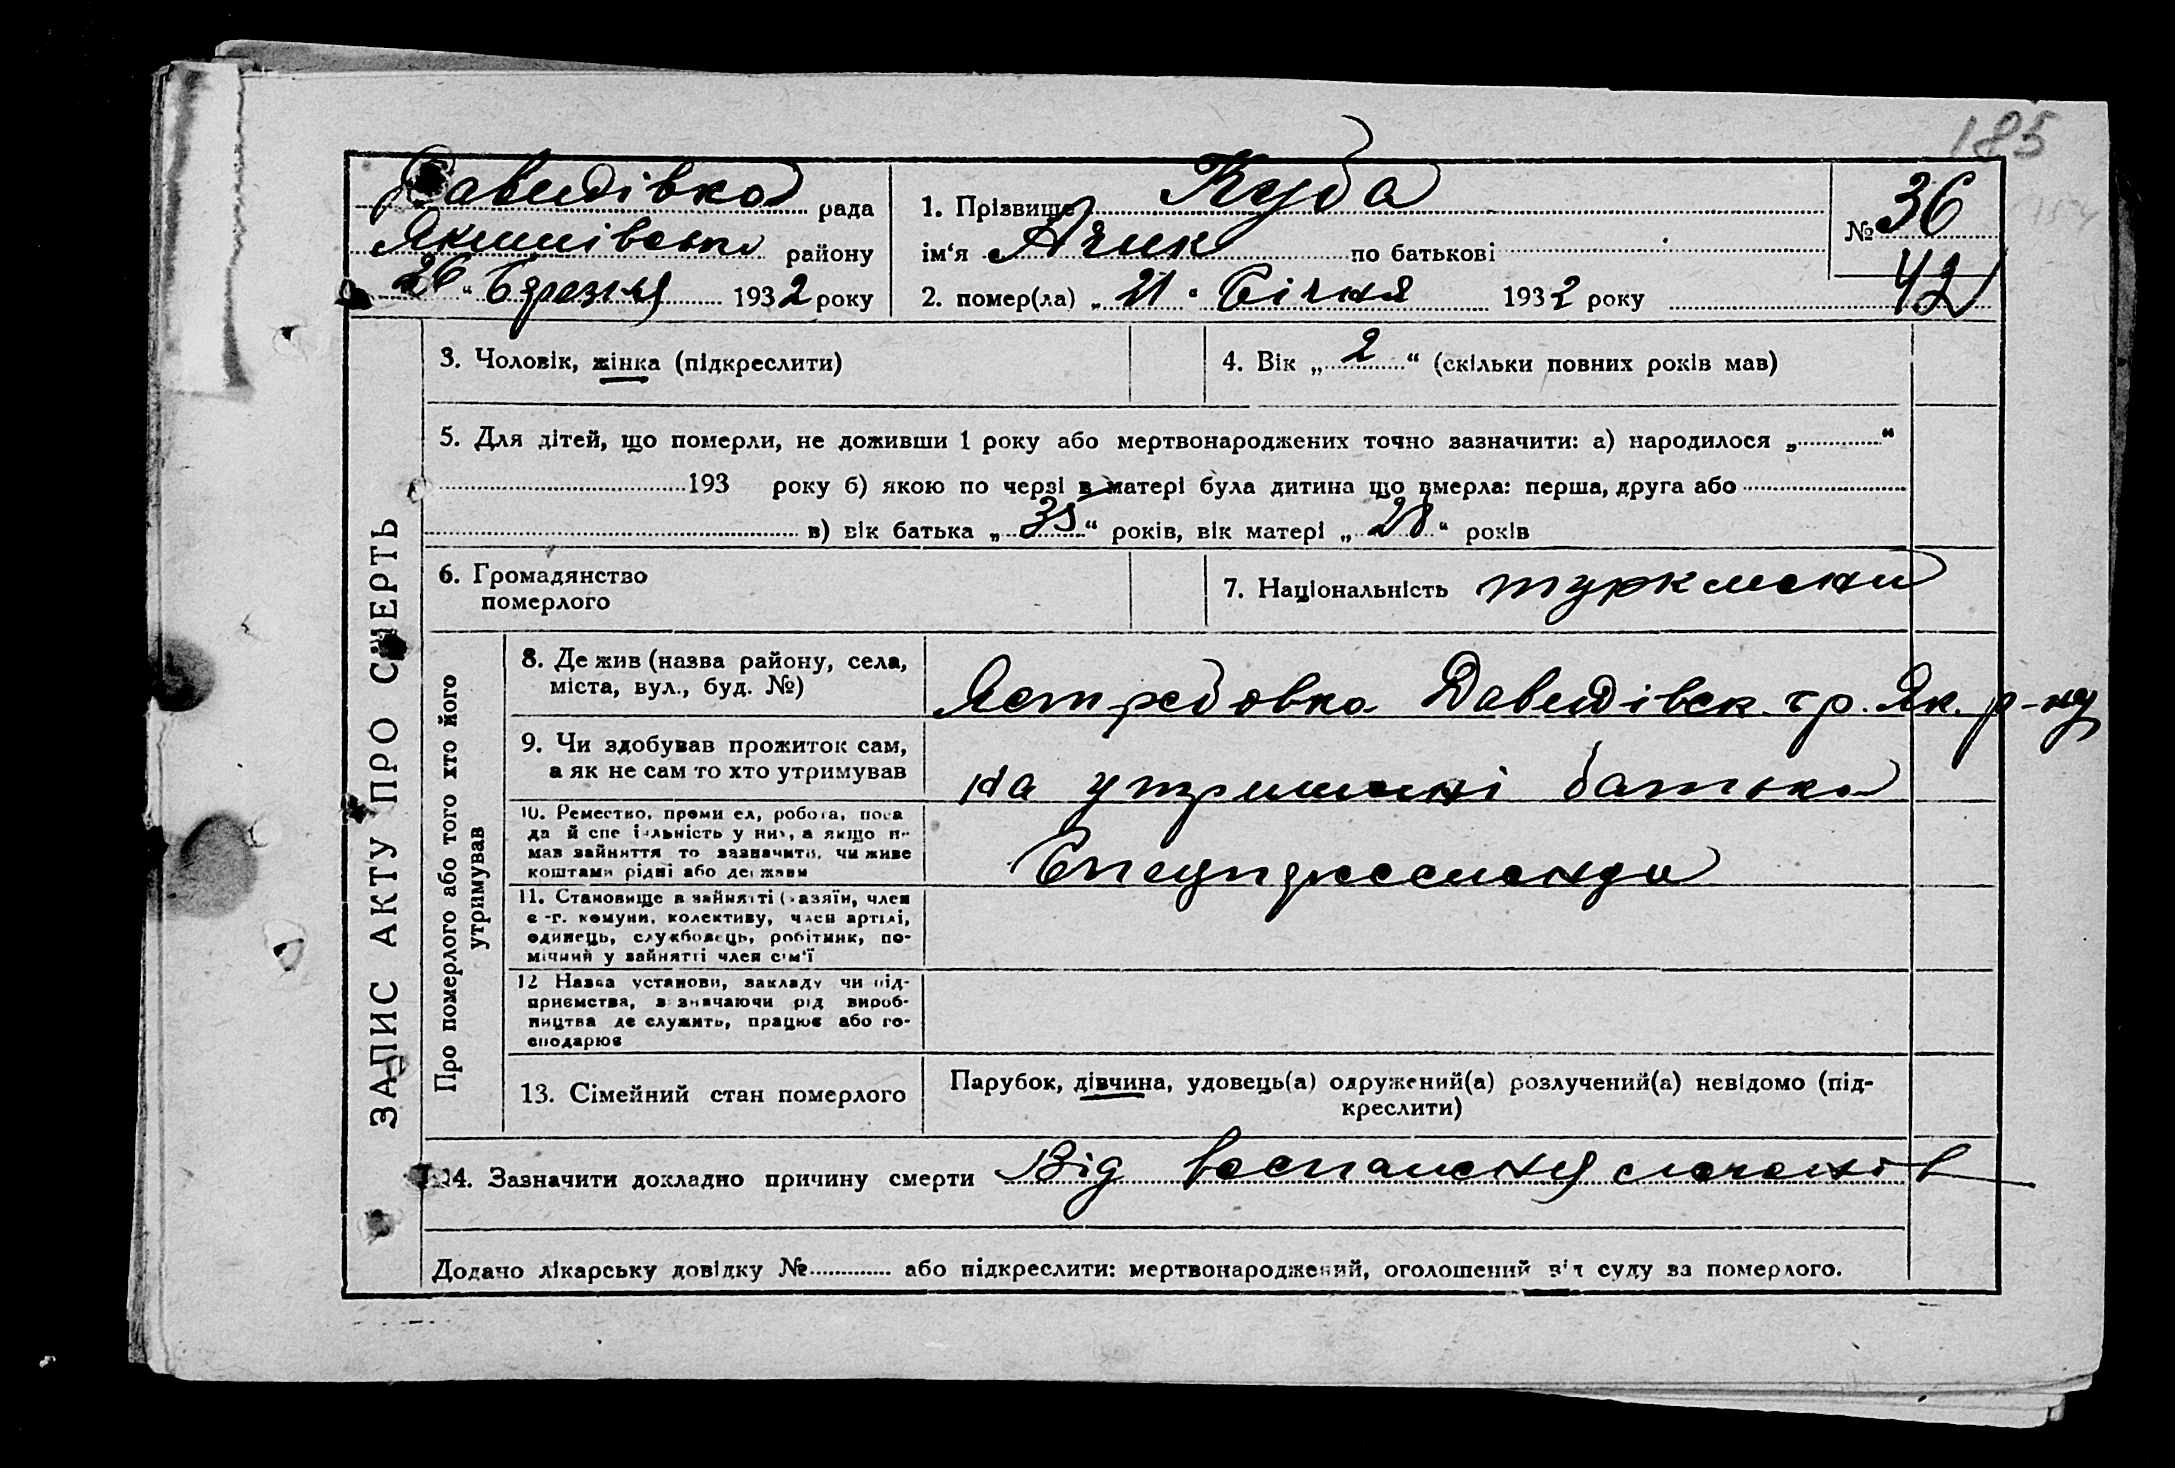 185
Давидівка рада
Якимівського району
26 " Березня 1932 року
1. Прізвище Куба
ім‘я Ачик по батькові
2. помер(ла) „ 21 " Січня 1932 року
№ 36
42
ЗАПИС АКТУ ПРО СМЕРТЬ
3. Чоловік, жінка (підкреслити)
4. Вік „ 2 “ (скільки повних років мав)
5. Для дітей, що померли, не доживши 1 року або мертвонароджених точно зазначити: а) народилося „ “
193 року б) якою по черзі в матері була дитина що вмерла: перша, друга або
в) вік батька „ 35 “ років, вік матері „ 28 “ років
6. Громадянство
померлого
7. Національність туркмени
Про померлого або того хто його
утримував
8. Де жив (назва району, села,
міста, вул., буд. №)
Ястребовка Давидівск. гр. Як. р-ну
9. Чи здобував прожиток сам,
а як не сам то хто утримував
на утриманні батька
10. Ремество, проми ел, робота, поса
да й спе іяльність у них, а якщо н-
мав зайняття то зазначити, чи живе
коштами рідні або держави
Спецпереселенци
11. Становище в зайнятті (хазяїн, член
с-г. комуни, колективу, член артілі,
одинець, службовець, робітник, по-
мічний у зайнятті член сім'ї
12 Назва установи, закладу чи під-
приємства, зазначаючи рід вироб-
ництва де служить, працює або го-
сподарює
13. Сімейний стан померлого
Парубок, дівчина, удовець(а) одружений(а) розлучений(а) невідомо (під-
креслити)
14. Зазначити докладно причину смерти Від воспаления
Додано лікарську довідку № або підкреслити: мертвонароджений, оголошений від суду за померлого.